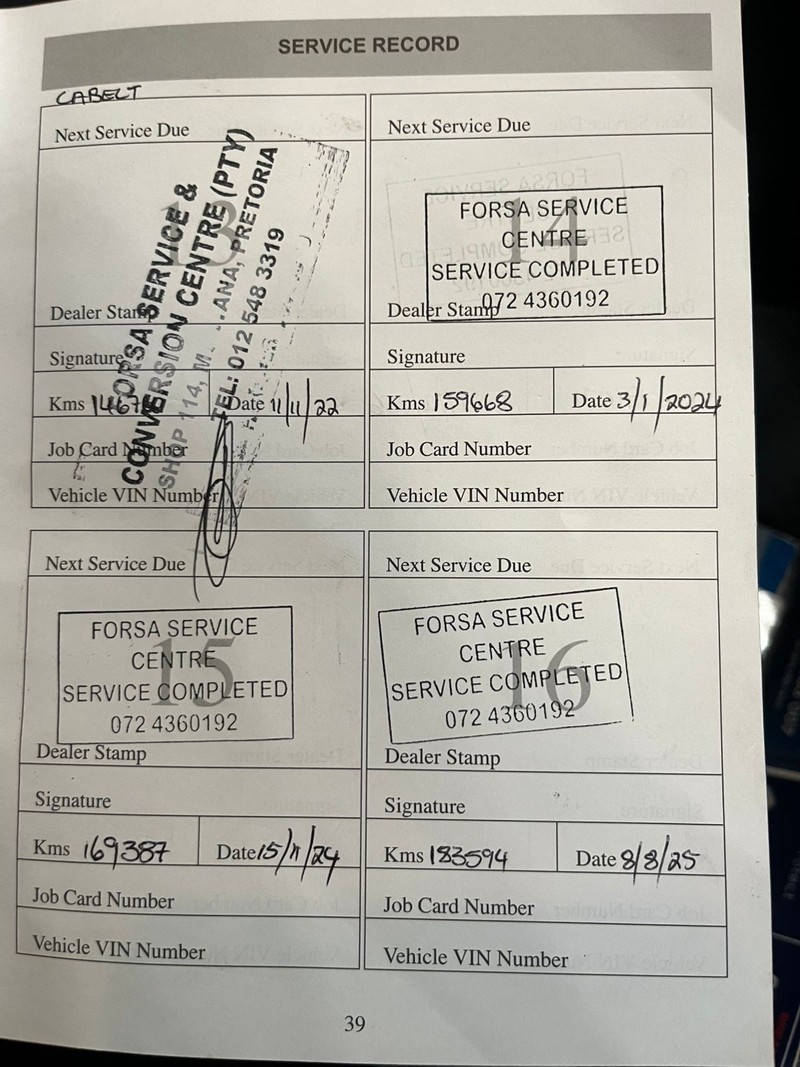 SERVICE RECORD
CABELT
Next Service Due
13
FORSA SERVICE &
CONVERSION CENTRE (PTY)
SHOP 114, PRETORIA
TEL: 012 548 3319
Dealer Stamp
Signature
Kms Date 11/11/22
Job Card Number
Vehicle VIN Number
Next Service Due
14
FORSA SERVICE
CENTRE
SERVICE COMPLETED
072 4360192
Dealer Stamp
Signature
Kms 159668 Date 3/1/2024
Job Card Number
Vehicle VIN Number
Next Service Due
15
FORSA SERVICE
CENTRE
SERVICE COMPLETED
072 4360192
Dealer Stamp
Signature
Kms 169387 Date 15/11/24
Job Card Number
Vehicle VIN Number
Next Service Due
16
FORSA SERVICE
CENTRE
SERVICE COMPLETED
072 4360192
Dealer Stamp
Signature
Kms 183594 Date 8/8/25
Job Card Number
Vehicle VIN Number
39